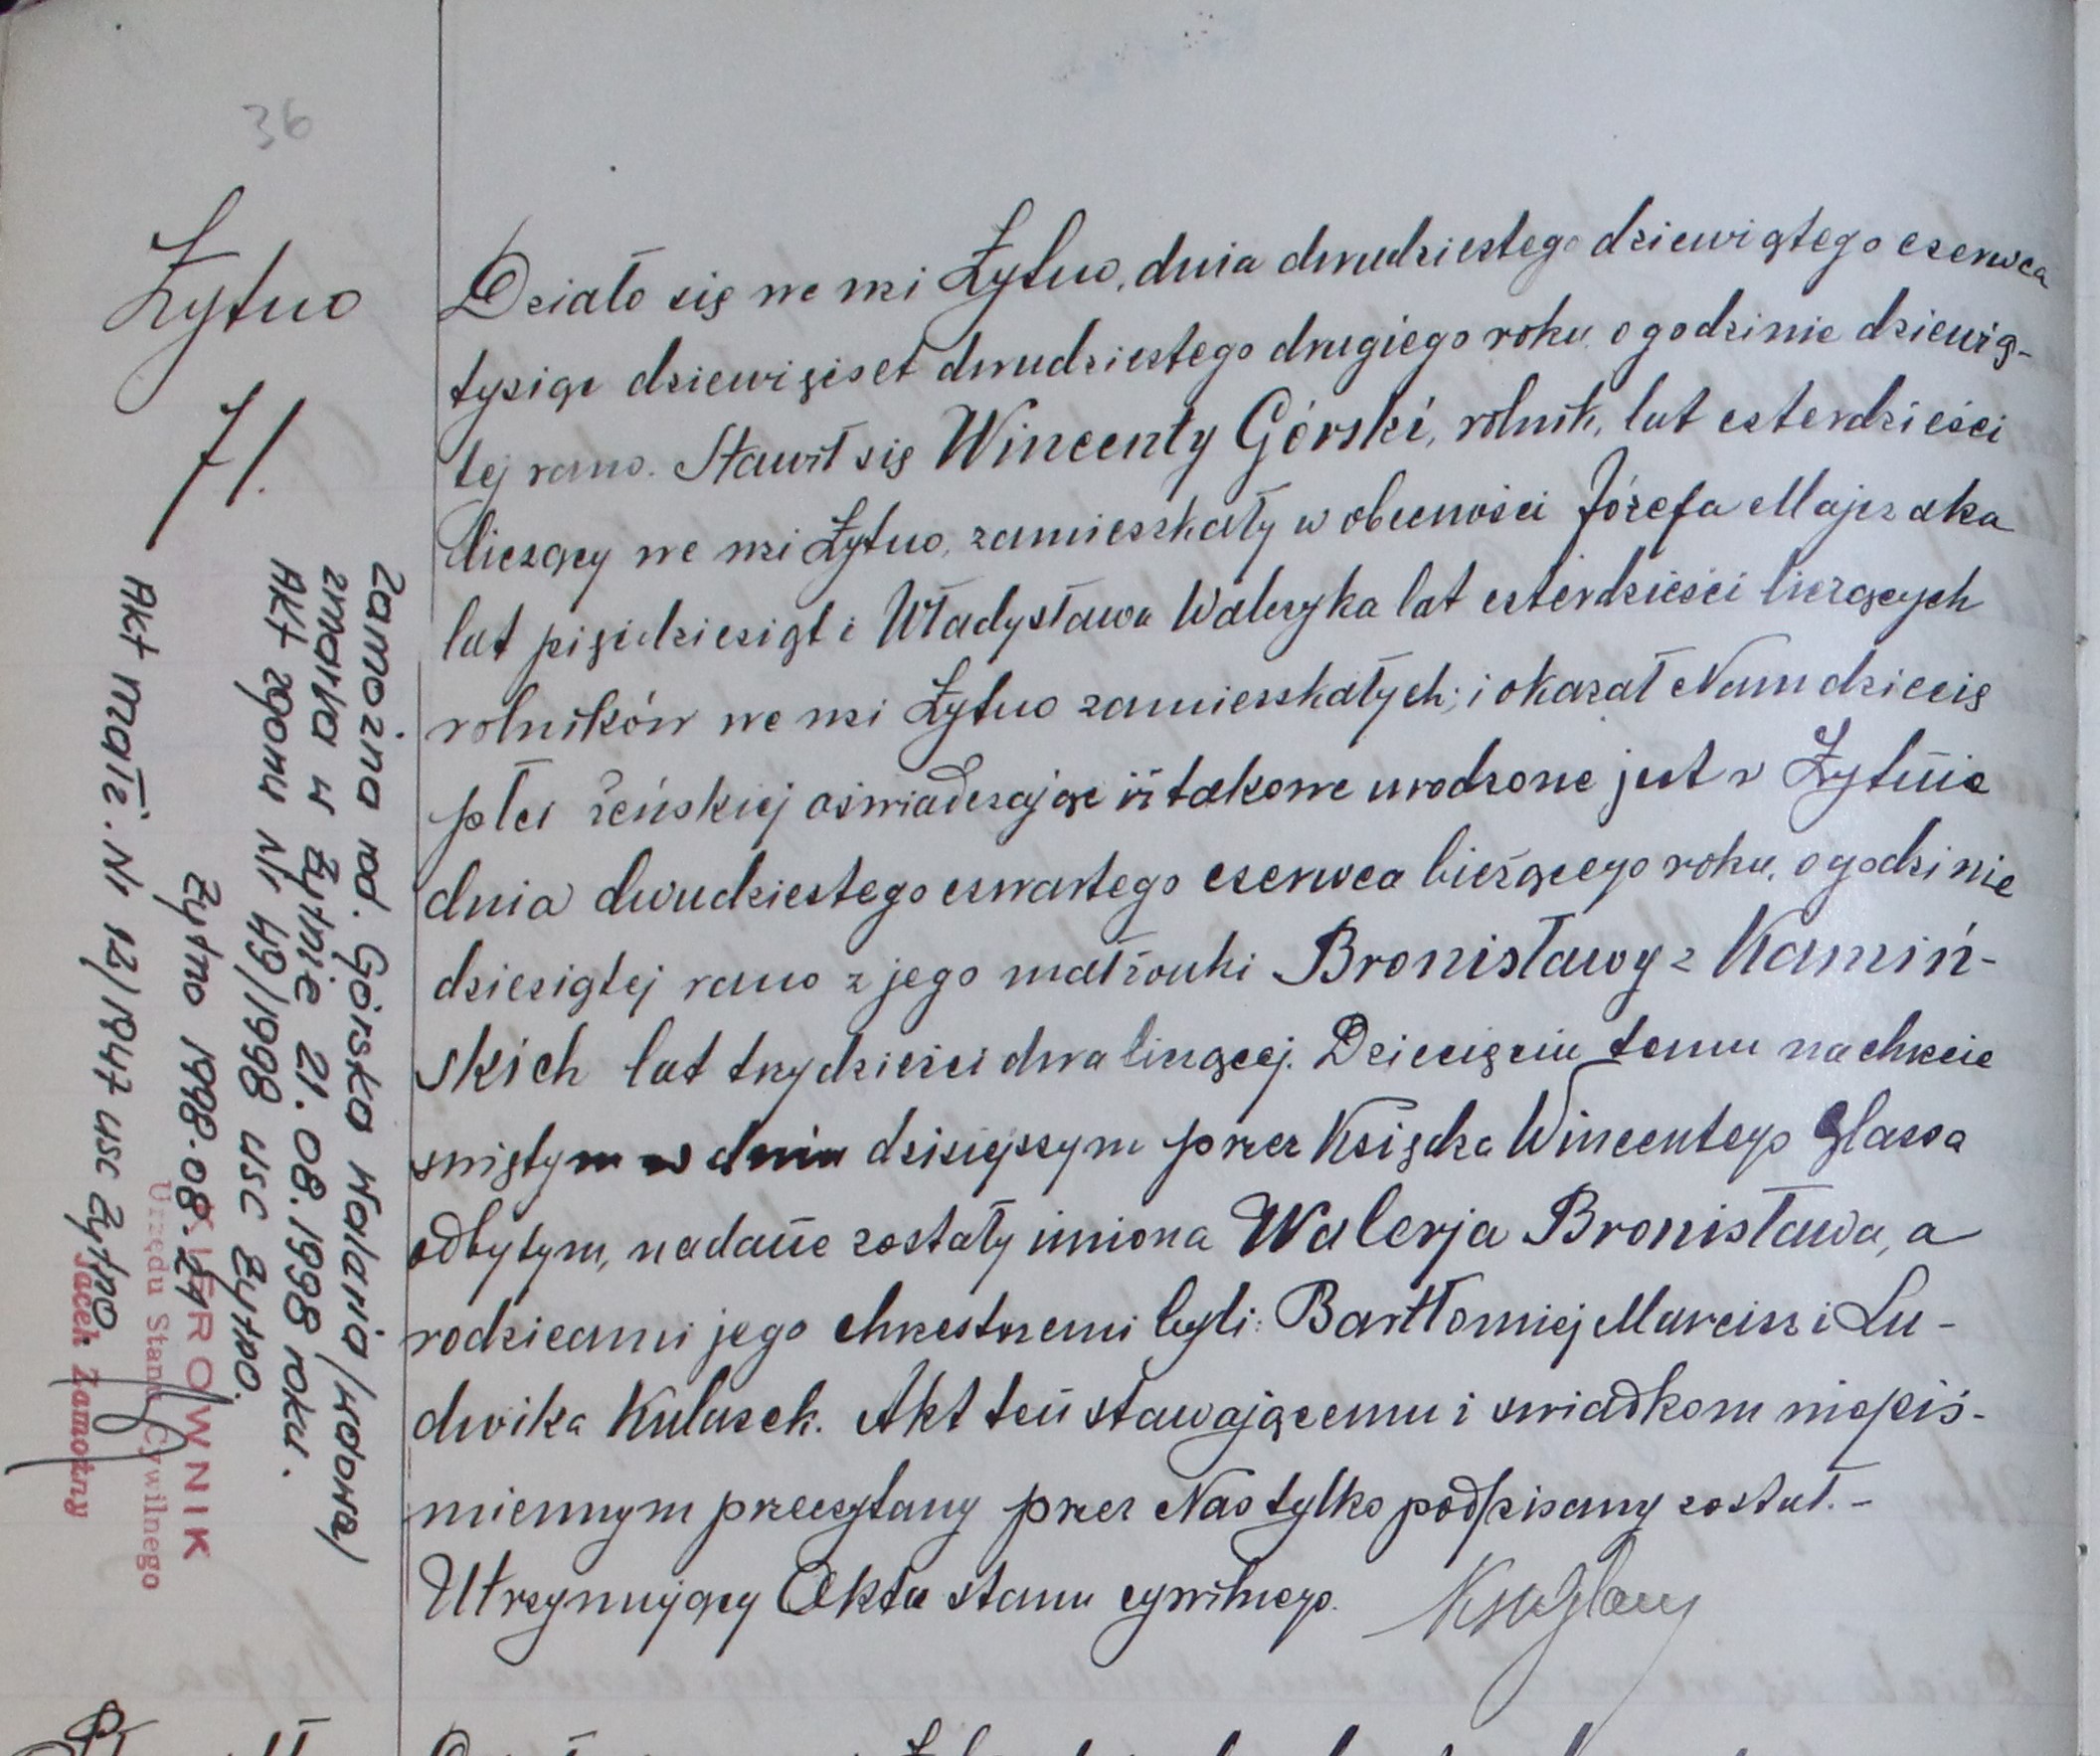 36
Żytno
71.
Działo się we wsi Żytno, dnia dwudziestego dziewiątego czerwca
tysiąc dziewięset dwudziestego drugiego roku o godzinie dziewią-
tej rano. Stawił się Wincenty Górski, rolnik, lat czterdzieści
liczący we wsi Żytno, zamieszkały w obecności Józefa Majczaka
lat pięćdziesiąt i Władysława Walczyka lat czterdzieści liczących
rolników we wsi Żytno zamieszkałych; i okazał Nam dziecię
płci żeńskiej oświadczając iż takowe urodzone jest w Żytnie
dnia dwudziestego czwartego czerwca bieżącego roku, o godzinie
dziesiątej rano z jego małżonki Bronisławy z Kamiń-
skich lat trzydzieści dwa liczącej. Dziecięciu temu na chrzcie
świętym w dniu dzisiejszym przez Księdza Wincentego Glassa
odbytym, nadane zostały imiona Walerja Bronisława, a
rodzicami jego chrzestnemi byli: Bartłomiej Marcisz i Lu-
dwika Kulasek. Akt ten stawającemu i świadkom niepiś-
miennym przeczytany przez Nas tylko podpisany został. -
Utrzymujący Akta stanu cywilnego.
Zamożna rd. Górska Waleria /wdowa/
zmarła w Żytnie 21.08.1998 roku.
Akt zgonu Nr 49/1998 USC Żytno.
Żytno 1998.08.24
Akt małż. Nr 12/1947 USC Żytno
KIEROWNIK
Urzędu Stanu Cywilnego
Jacek Zamożny